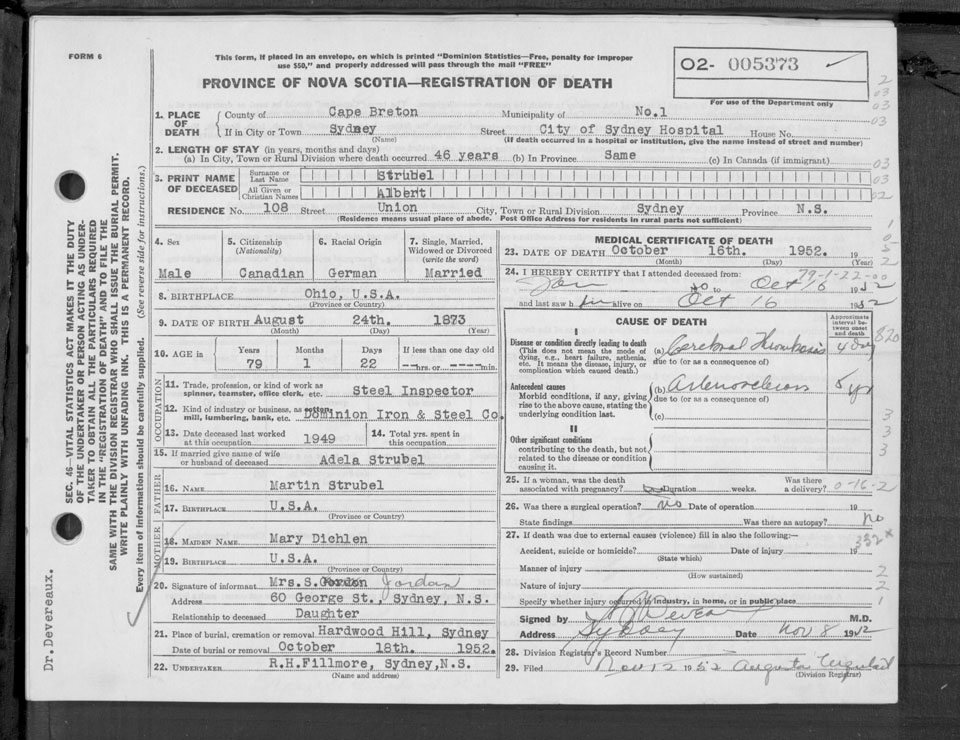 FORM 6
This form, if placed in an envelope, on which is printed "Dominion Statistics—Free, penalty for improper
use $50," and properly addressed will pass through the mail "FREE"
PROVINCE OF NOVA SCOTIA—REGISTRATION OF DEATH
02- 005373
For use of the Department only
1. PLACE OF DEATH County of Cape Breton Municipality of No.1
If in City or Town Sydney Street City of Sydney Hospital House No.
(Name) (If death occurred in a hospital or institution, give the name instead of street and number)
2. LENGTH OF STAY (in years, months and days)
(a) In City, Town or Rural Division where death occurred 46 years (b) In Province Same (c) In Canada (if immigrant)
3. PRINT NAME OF DECEASED Surname or Last Name Strubel
All Given or Christian Names Albert
RESIDENCE No. 108 Street Union City, Town or Rural Division Sydney Province N.S.
(Residence means usual place of abode. Post Office Address for residents in rural parts not sufficient)
4. Sex 5. Citizenship (Nationality) 6. Racial Origin 7. Single, Married, Widowed or Divorced (write the word)
Male Canadian German Married
8. BIRTHPLACE Ohio, U.S.A.
(Province or Country)
9. DATE OF BIRTH August 24th. 1873
(Month) (Day) (Year)
10. AGE in Years Months Days If less than one day old
79 1 22 hrs. or min.
OCCUPATION
11. Trade, profession, or kind of work as spinner, teamster, office clerk, etc. Steel Inspector
12. Kind of industry or business, as cotton mill, lumbering, bank, etc. Dominion Iron & Steel Co.
13. Date deceased last worked at this occupation 1949 14. Total yrs. spent in this occupation
15. If married give name of wife or husband of deceased Adela Strubel
FATHER
16. NAME Martin Strubel
17. BIRTHPLACE U.S.A.
(Province or Country)
MOTHER
18. MAIDEN NAME Mary Dichlen
19. BIRTHPLACE U.S.A.
(Province or Country)
20. Signature of informant Mrs.S. Jordan
Address 60 George St., Sydney, N.S.
Relationship to deceased Daughter
21. Place of burial, cremation or removal Hardwood Hill, Sydney
Date of burial or removal October 18th. 1952.
22. UNDERTAKER R.H.Fillmore, Sydney,N.S.
(Name and address)
MEDICAL CERTIFICATE OF DEATH
23. DATE OF DEATH October 16th. 1952. 19
(Month) (Day) (Year)
79-1-22-00
24. I HEREBY CERTIFY that I attended deceased from:
Jan to Oct 16 1952
and last saw him alive on Oct 16 1952
CAUSE OF DEATH
Approximate interval between onset and death
I
Disease or condition directly leading to death
(This does not mean the mode of dying, e.g., heart failure, asthenia, etc. It means the disease, injury, or complication which caused death.)
(a) Cerebral Thrombosis 4 day
due to (or as a consequence of)
Antecedent causes
Morbid conditions, if any, giving rise to the above cause, stating the underlying condition last.
(b) 5 yr
due to (or as a consequence of)
(c)
II
Other significant conditions contributing to the death, but not related to the disease or condition causing it.
25. If a woman, was the death associated with pregnancy? Duration weeks. Was there a delivery? 0-16-2
26. Was there a surgical operation? No Date of operation 19
State findings Was there an autopsy? No
27. If death was due to external causes (violence) fill in also the following:— 332x
Accident, suicide or homicide? Date of injury 19
(State which)
Manner of injury
(How sustained)
Nature of injury
Specify whether injury occurred in industry, in home, or in public place
Signed by M.D.
Address Sydney Date Nov 8 1952
28. Division Registrar's Record Number
29. Filed Nov 12 1952 Augusta
(Division Registrar)
SEC. 46—VITAL STATISTICS ACT MAKES IT THE DUTY
OF THE UNDERTAKER OR PERSON ACTING AS UNDER-
TAKER TO OBTAIN ALL THE PARTICULARS REQUIRED
IN THE "REGISTRATION OF DEATH" AND TO FILE THE
SAME WITH THE DIVISION REGISTRAR WHO SHALL ISSUE THE BURIAL PERMIT.
WRITE PLAINLY WITH UNFADING INK. THIS IS A PERMANENT RECORD.
Every item of information should be carefully supplied. (See reverse side for instructions.)
Dr. Devereaux.